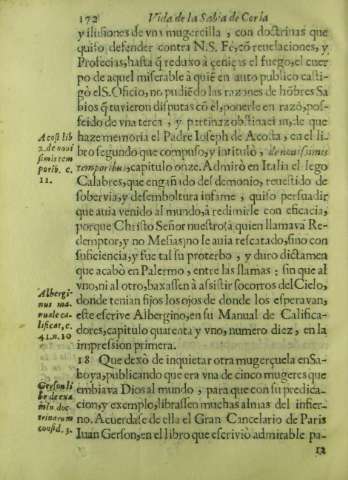 172 Vida de la Sabia de Coria
y ilusiones de vna mugercilla, con doctrinas que
quiso defender contra N.S. Fè, cõ reuelaciones, y
Profecias, hasta q̃ reduxo à çeniças el fuego, el cuer
po de aquel miserable à quiẽ en auto publico casti-
gò el S. Oficio, no pudiẽdo las razones de hõbres Sa
bios q̃ tuvieron disputas cõ el, ponerle en razò, pos-
seido de vna terca, y pertinaz obstinaciõ, de que
haze memoria el Padre Ioseph de Acosta, en el li-
bro segundo que compuso, y intitulò, de nouissimis
temporibus, capitulo onze. Admirò en Italia el lego
Calabres, que engañado del demonio, reuestido de
sobervia, y desemboltura infame, quiso persuadir
que auia venido al mundo, à redimirle con eficacia,
porque Christo Señor nuestro (à quien llamava Re-
demptor, y no Mesias) no le auia rescatado, sino con
suficiencia, y fue tal su proterbo, y duro dictamen
que acabò en Palermo, entre las llamas: sin que al
vno, ni al otro, baxassen à assistir socorros del Cielo,
donde tenian fijos los ojos de donde los esperavan,
este escrive Albergino, en su Manual de Califica-
dores, capitulo quarenta y vno, numero diez, en la
impression primera.
18 Que dexò de inquietar otra mugerçuela en Sa-
boya, publicando que era vna de cinco mugeres que
embiava Dios al mundo, para que con su predica-
cion, y exemplo, librassen muchas almas del infier-
no. Acuerdase de ella el Gran Cancelario de Paris
Iuan Gerson, en el libro que escriviò admirable pa-
Acost li
2. de noui
simis tem
porib. c.
11.
Albergi-
nus ma.
nuale ca-
lificat, c.
41. n. 10
Gerson li
br de exa
min. doc-
trinarum
consid. 3.